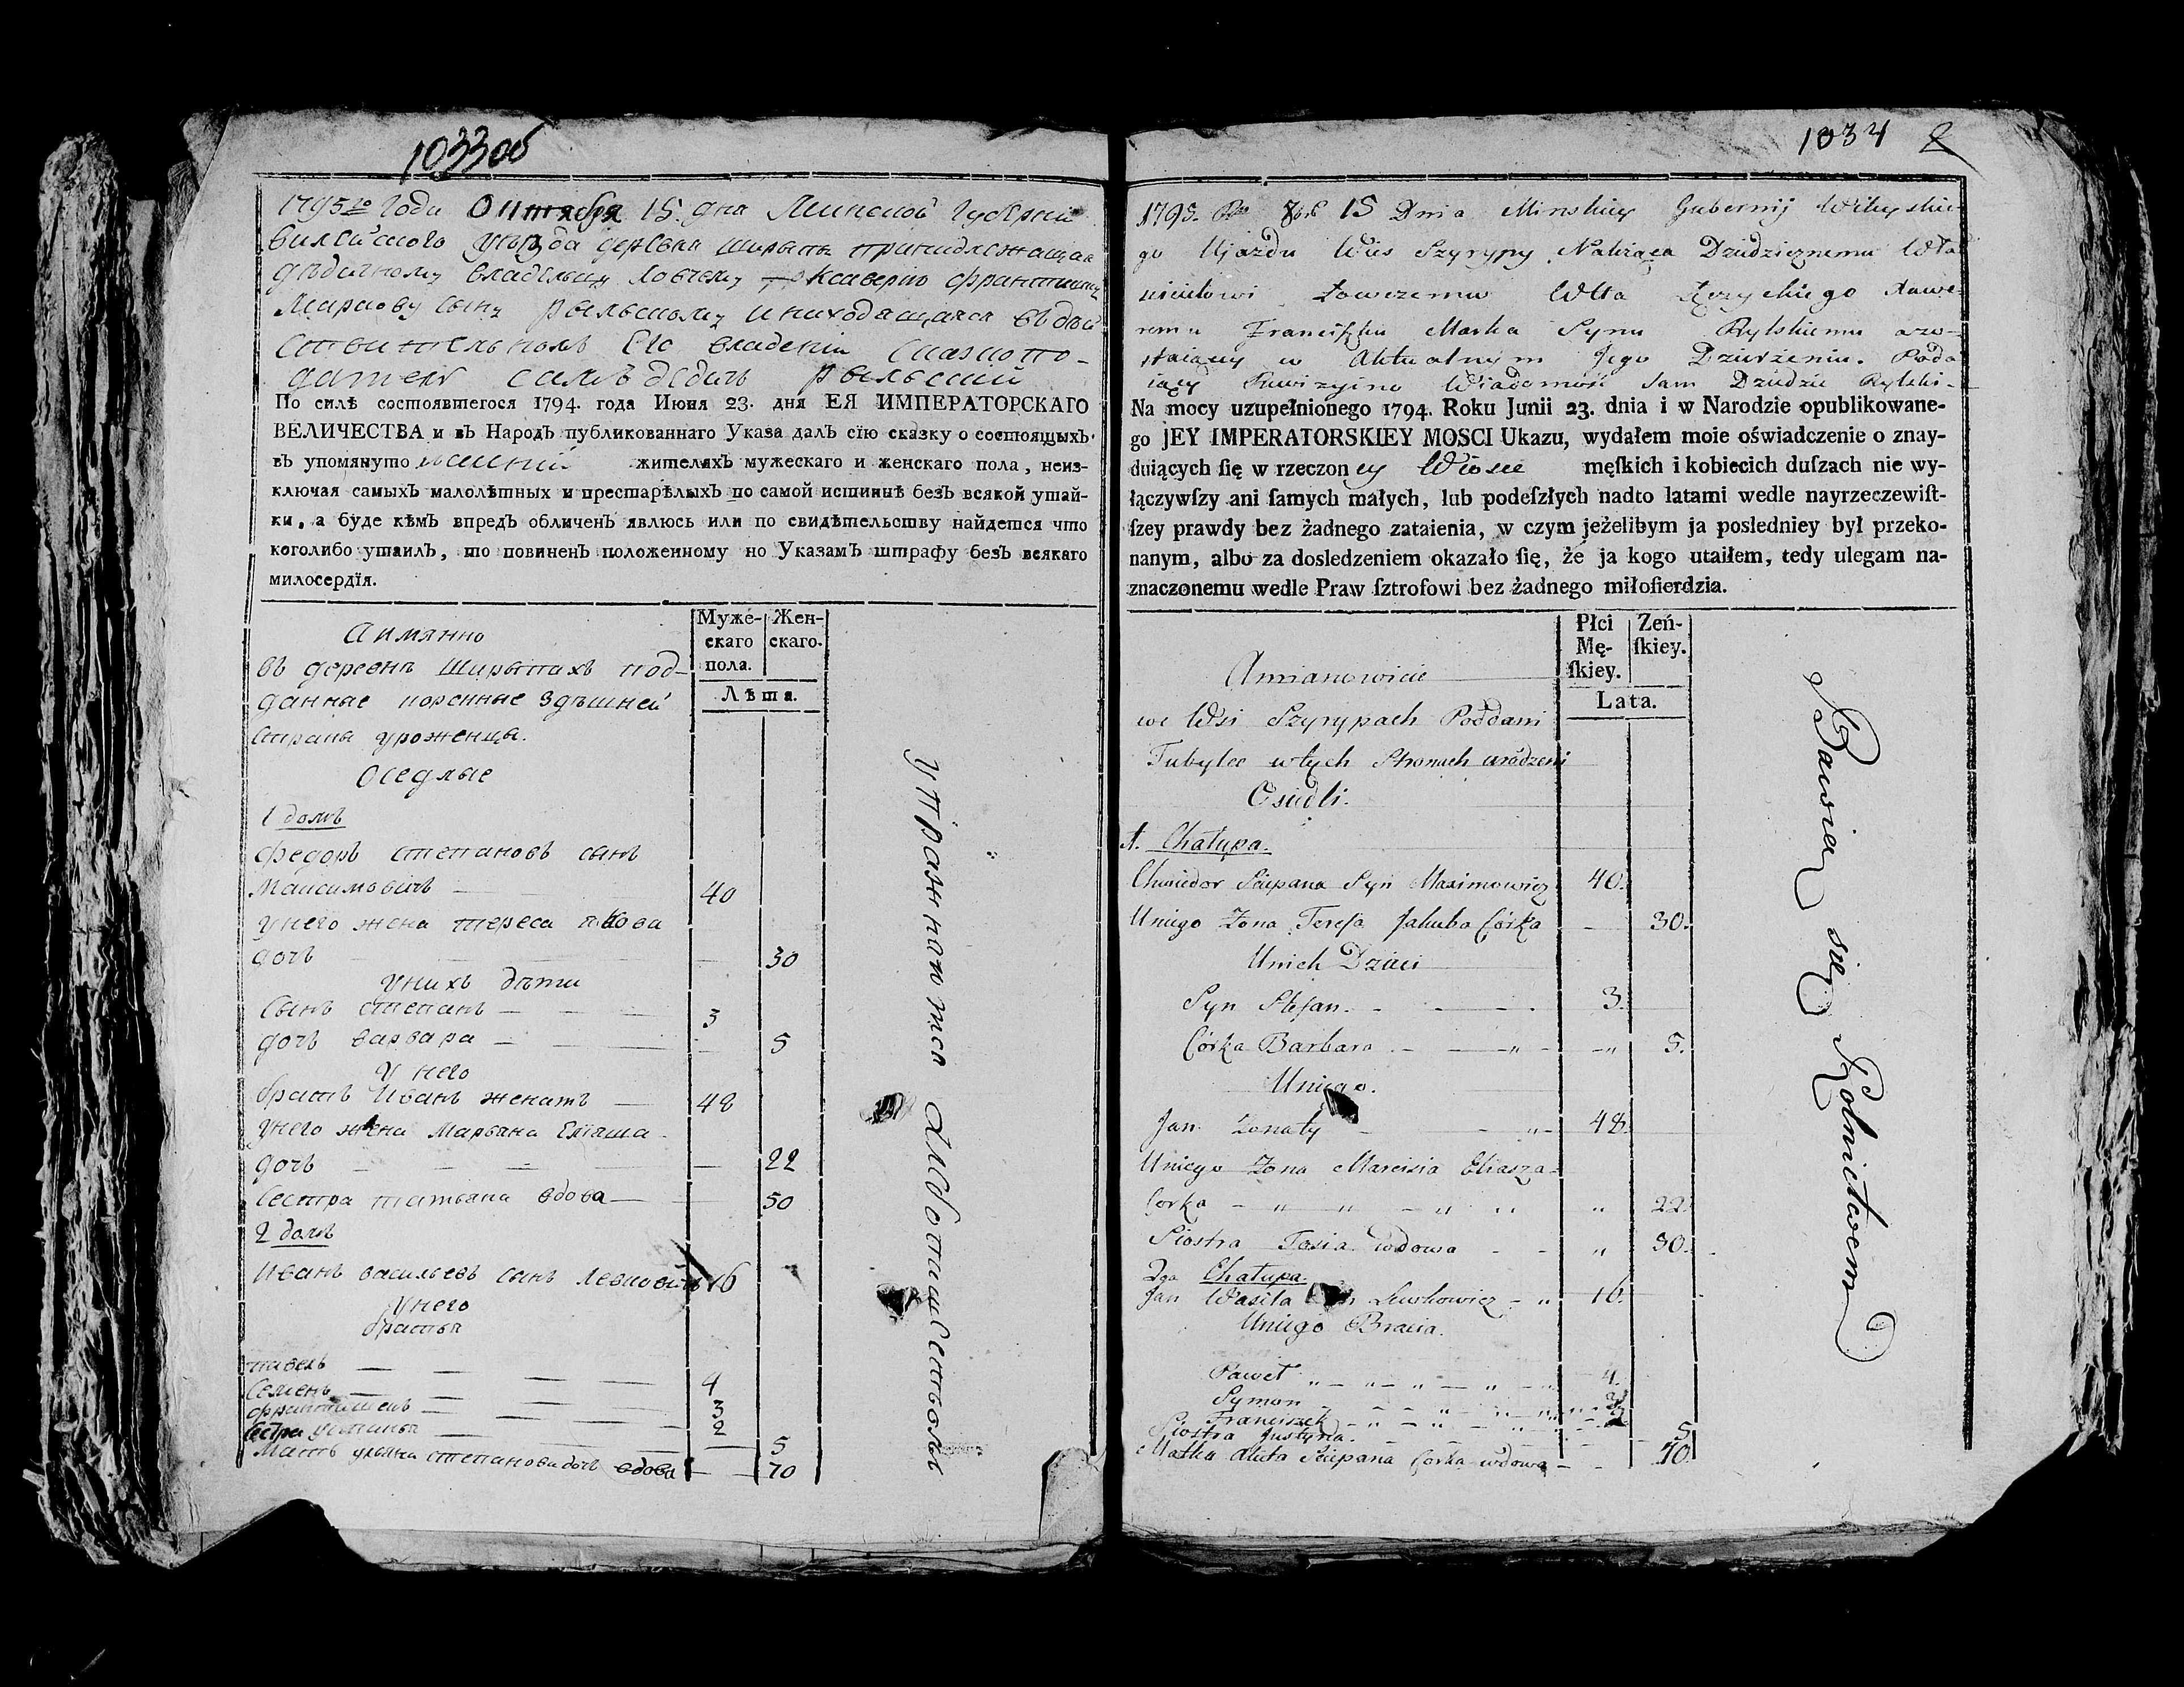 1033об
1795го Года Октября 15 дня Минской Губернїи
Вилейского уѣзда деревня Ширыпы принадлежащая
дѣдичному владѣльцу Ловчему Ксаверїю Францишку
Маркову сыну Рыльскому и находящаяся въ дѣй
ствительномъ Его владенїи Сказкопо-
датель самъ дѣдичъ Рыльский
По силѣ состоявшегося 1794. года Июня 23. дня ЕЯ ИМПЕРАТОРСКАГО
ВЕЛИЧЕСТВА и въ Народъ публикованнаго Указа далъ сїю сказку о состоящыхъ
въ упомянуто жителяхъ мужескаго и женскаго пола, неиз-
ключая самыхъ малолѣтныхъ и престарѣлыхъ по самой истиннѣ безъ всякой утай-
ки, а буде кѣмъ впредъ обличенъ явлюсь или по свидѣтельству найдется что
коголибо утаилъ, то повиненъ положенному по Указамъ штрафу безъ всякаго
милосердїя.
Муже-
скаго
пола.
Жен-
скаго.
Лѣта.
Аимянно
въ деревнѣ Ширыпахъ под-
данные коренные здѣшней
Страны уроженцы.
Оседлые
1 домъ
Федоръ степановъ сынъ
Максимовичъ — 40
унего жена тереса якова
дочь — 30
унихъ дѣти
Сынъ степанъ — 3
дочь варвара — 5
у него
братъ Иванъ женатъ — 48
унего жена Марьяна Елїаша
дочь — 22
Сестра татьяна вдова — 50
2 домъ
Иванъ васильевъ сынъ Левковичъ 16
унего
братья
павелъ — 4
Семенъ — 3
францишекъ — 2
Сестра устинья — 5
Мать ульяна степанова дочь вдова — 70
упражняются Хлебопашеством
1034 2
1795. Rku 8bra 15 Dnia Minskiey Gubernij Wileyskie
go Ujazdu Wies Szyrypy Należąca Dziedzicznemu Wła
scicielowi Łowczemu Wtta Łęczyckiego Xawe-
remu Franciszku Marka Synu Rylskiemu a zo-
staiący w Aktualnym Jego Dzierżeniu. Poda
iący Rewizyina Wiadomość sam Dziedzic Rylski-
Na mocy uzupełnionego 1794. Roku Junii 23. dnia i w Narodzie opublikowane-
go JEY IMPERATORSKIEY MOSCI Ukazu, wydałem moie oświadczenie o znay-
duiących ſię w rzeczoney Wiosce męſkich i kobiecich duſzach nie wy-
łączywſzy ani ſamych małych, lub podeſzłych nadto latami wedle nayrzeczewiſt-
ſzey prawdy bez żadnego zataienia, w czym jeżelibym ja posledniey był przeko-
nanym, albo za dosledzeniem okazało ſię, że ja kogo utaiłem, tedy ulegam na-
znaczonemu wedle Praw ſztrofowi bez żadnego miłoſierdzia.
Płci
Mę-
ſkiey.
Zeń-
ſkiey.
Lata.
Amianowicie
we Wsi Szyrypach Poddani
Tubylce wtych Stronach urodzeni
Osiedli.
1. Chałupa.
Chwiedor Sciepana Syn Maximowicz 40.
Uniego Zona Teresa Jakuba Córka — 30.
Unich Dzieci
Syn Stefan. — 3.
Córka Barbara — 5.
Uniego.
Jan Zonaty — 48.
Uniego Zona Marcisia Eliasza
Corka — 22.
Siostra Tosia wdowa — 30.
2ga Chałupa.
Jan Wasila Syn Lewkowicz — 16.
Uniego Bracia.
Paweł — 4.
Symon — 3
Franciszek — 2
Siostra Justyna — 5
Matka Sciepana Corka wdowa — 70.
Bawią się Rolnictwem